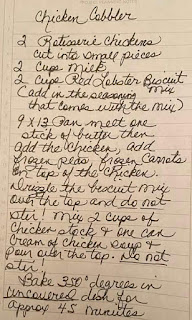 Chicken Cobbler
2 Rotisserie Chickens
cut into small pieces
2 Cups Milk
2 Cups Red Lobster Biscuit Mix
(add in the seasoning
that comes with the mix)
9 x 13 Pan melt one
stick of butter then
add the chicken, add
frozen peas, frozen carrots
on top of the chicken.
Drizzle the biscuit mix
over the top and do not
stir! Mix 2 cups of
chicken stock & one can
cream of chicken soup &
pour over the top. Do not
stir!
Bake 350° degrees in
uncovered dish for
approx 45 minutes